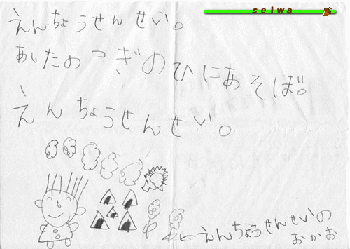 seiwa
えんちょうせんせい。
あしたのつぎのひにあそば。
えんちょうせんせい。
←えんちょうせんせいの
おかお